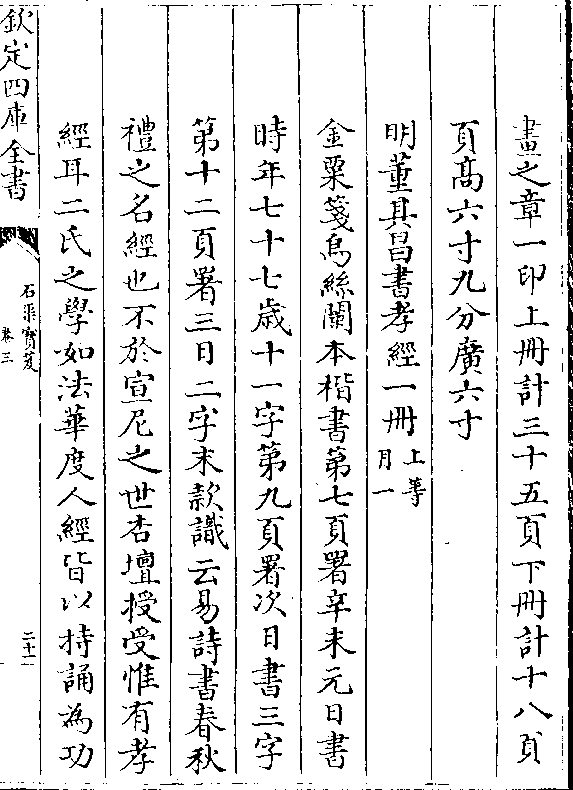 畫之章一印上冊計三十五頁下冊計十八頁
頁髙六寸九分廣六寸
明董其昌書孝經一冊上等
月一
金粟箋烏絲闌本楷書第七頁署辛未元日書
時年七十七歲十一字第九頁署次日書三字
第十二頁署三日二字末款識云易詩書春秋
禮之名經也不於宣尼之世杏壇授受惟有孝
經耳二氏之學如法華度人經皆以持誦為功
欽定四庫全書
石渠寶笈
卷三
二十一